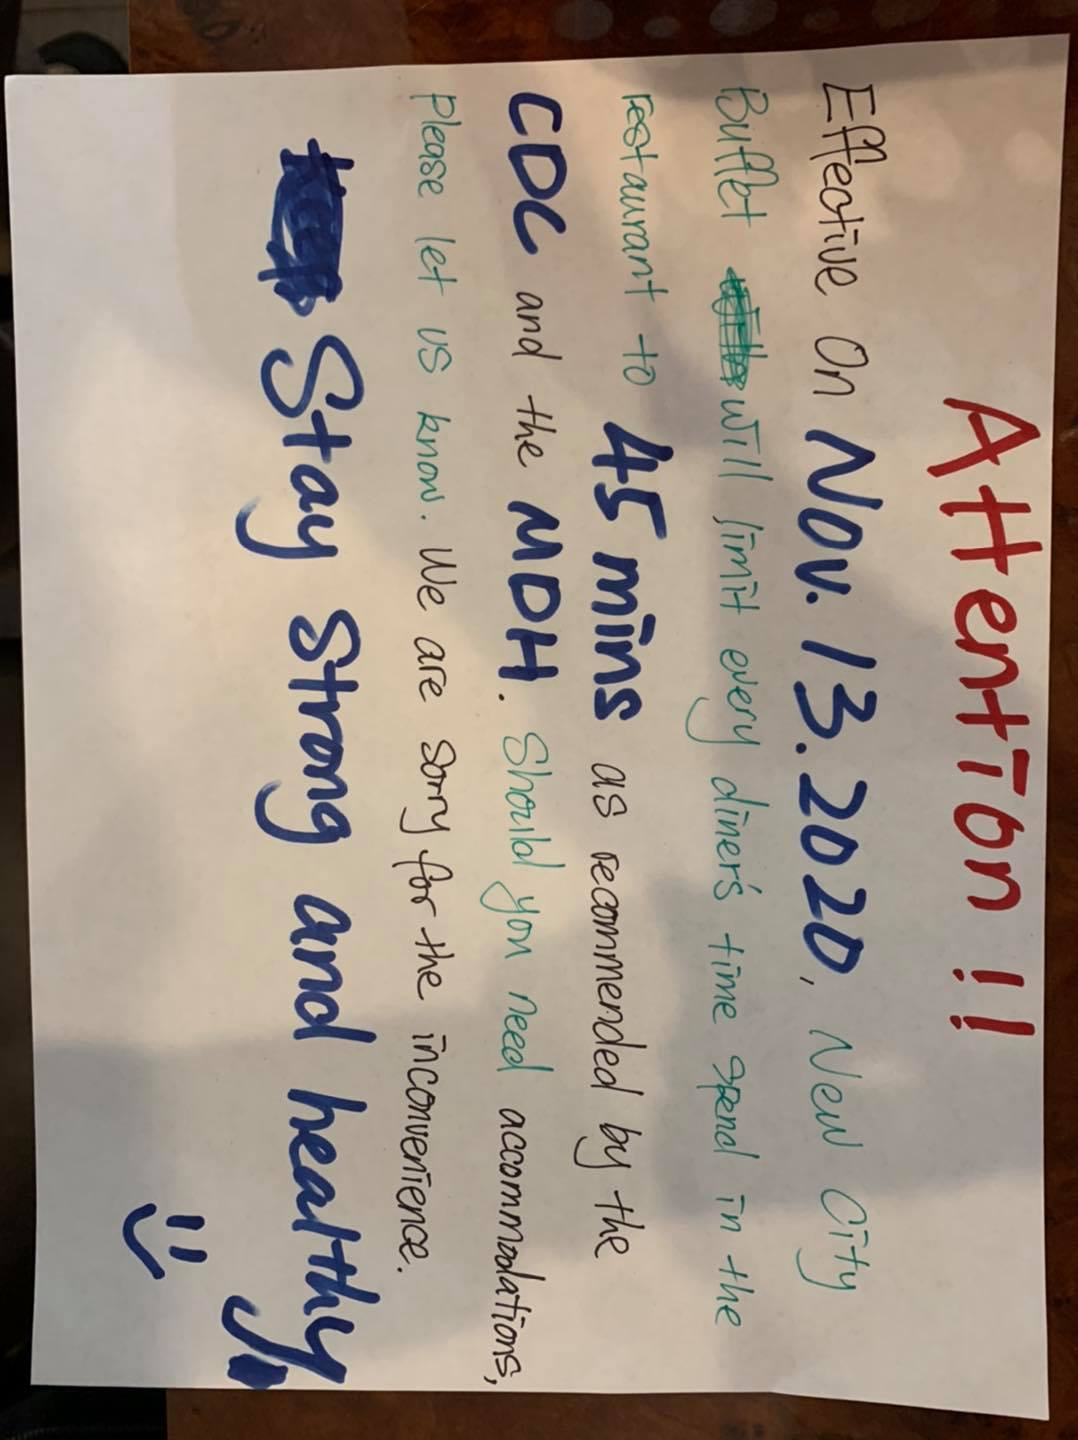 Attention !!
Effective On Nov. 13. 2020, New City
Buffet will limit every diner's time spend in the
restaurant to 45 mins as recommended by the
CDC and the MDH. Should you need accommodations,
Please let us know. We are sorry for the inconvenience.
Stay strong and healthy